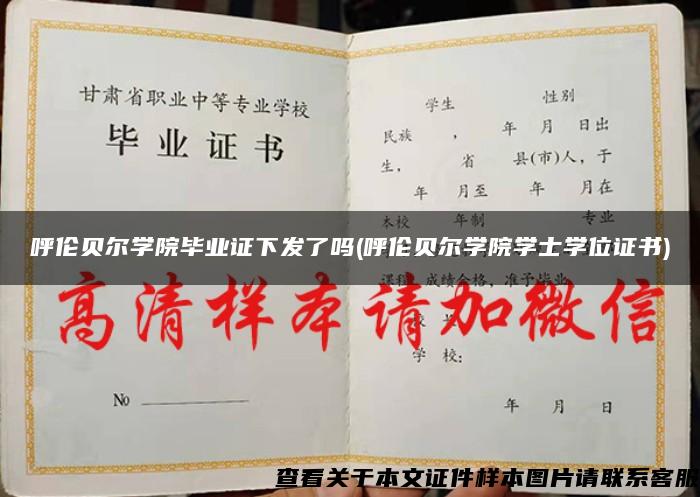 甘肃省职业中等专业学校
毕业证书
No
学生 性别
民族 ， 年 月 日出
生， 省 县(市)人，于
年 月至 年 月在
本校 年制 专业
呼伦贝尔学院毕业证下发了吗(呼伦贝尔学院学士学位证书)
课程，成绩合格，准予毕业
高清样本请加微信
学 校：
年 月 日
查看关于本文证件样本图片请联系客服